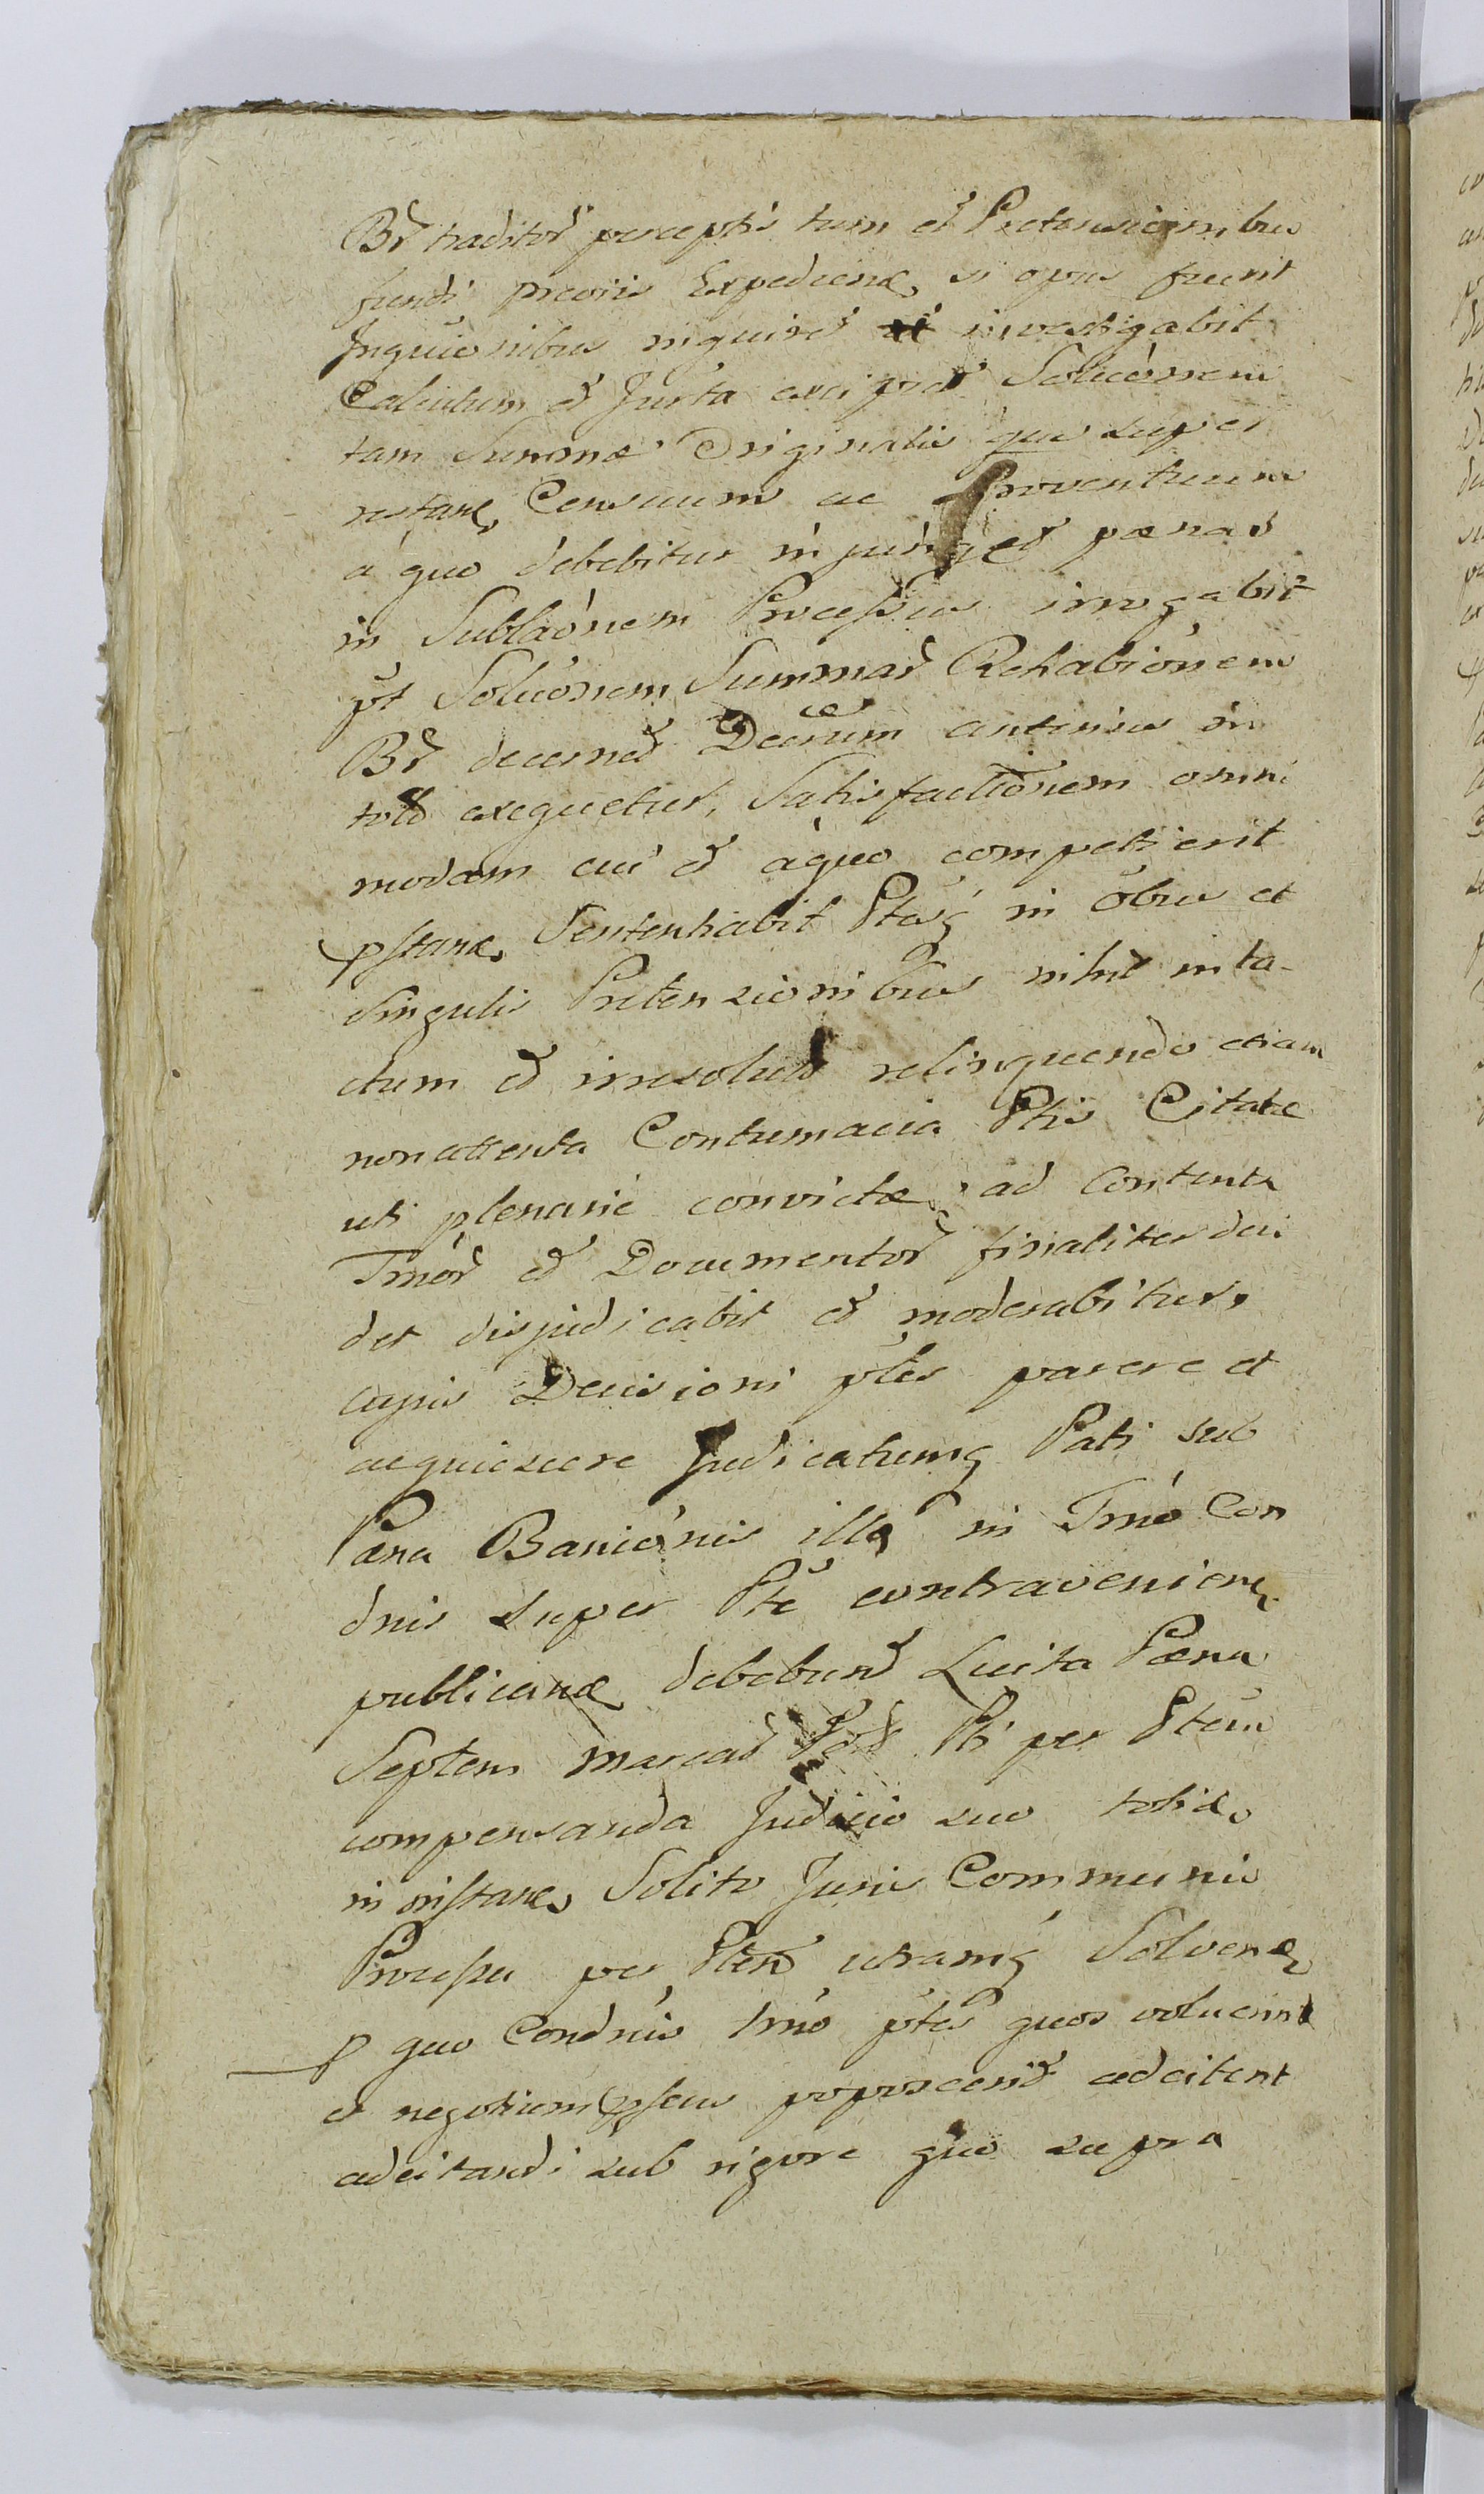 Br̃ traditor̃ perceptis tum et Pretensionibus
fundi previis Expediend si opus fuerit
Inquiõnibus inquiret et investigabit
Calculum et Juxta excipiet Soluõnem
tam Summæ Originalis qua super
restan Censuum ac Proventuum
à quo debebitur injunget pœnas
in Sublaõnem Processus irrogabit
pt Soluõnem Summar̃ Rehabiõnem
Br̃ decernet Decretum anterius in
toto exequetur, Satisfactionem omni
modam cui et àquo competierit
pstand Sententiabit Ptesq in õbus et
Singulis Pretensionibus nihil inta-
ctum et irresolut relinquendo etiam
non attenta Contumacia Ptis Citatæ
uti plenarie convictæ ad Contenta
Tmõr et Documentor̃ finaliter deci
det disjudicabit et moderabitur,
cujus Decisioni ptes parere et
acquiescere Judicatumq Pati sub
Pœna Baniõnis illa in Tmõ Con
dnis super Pte contravenien
publicand debebunt Luita Pæna
Septem marcar̃ Pti per Ptem
compensanda Judicio suo toties
in instan Solito Juris Communis
Processu per Ptem utramq Solvend
p quo Condnis tmõ ptes quos voluerint
et negotium pseus poposcerit adcitent
adcitandi sub rigore quo supra